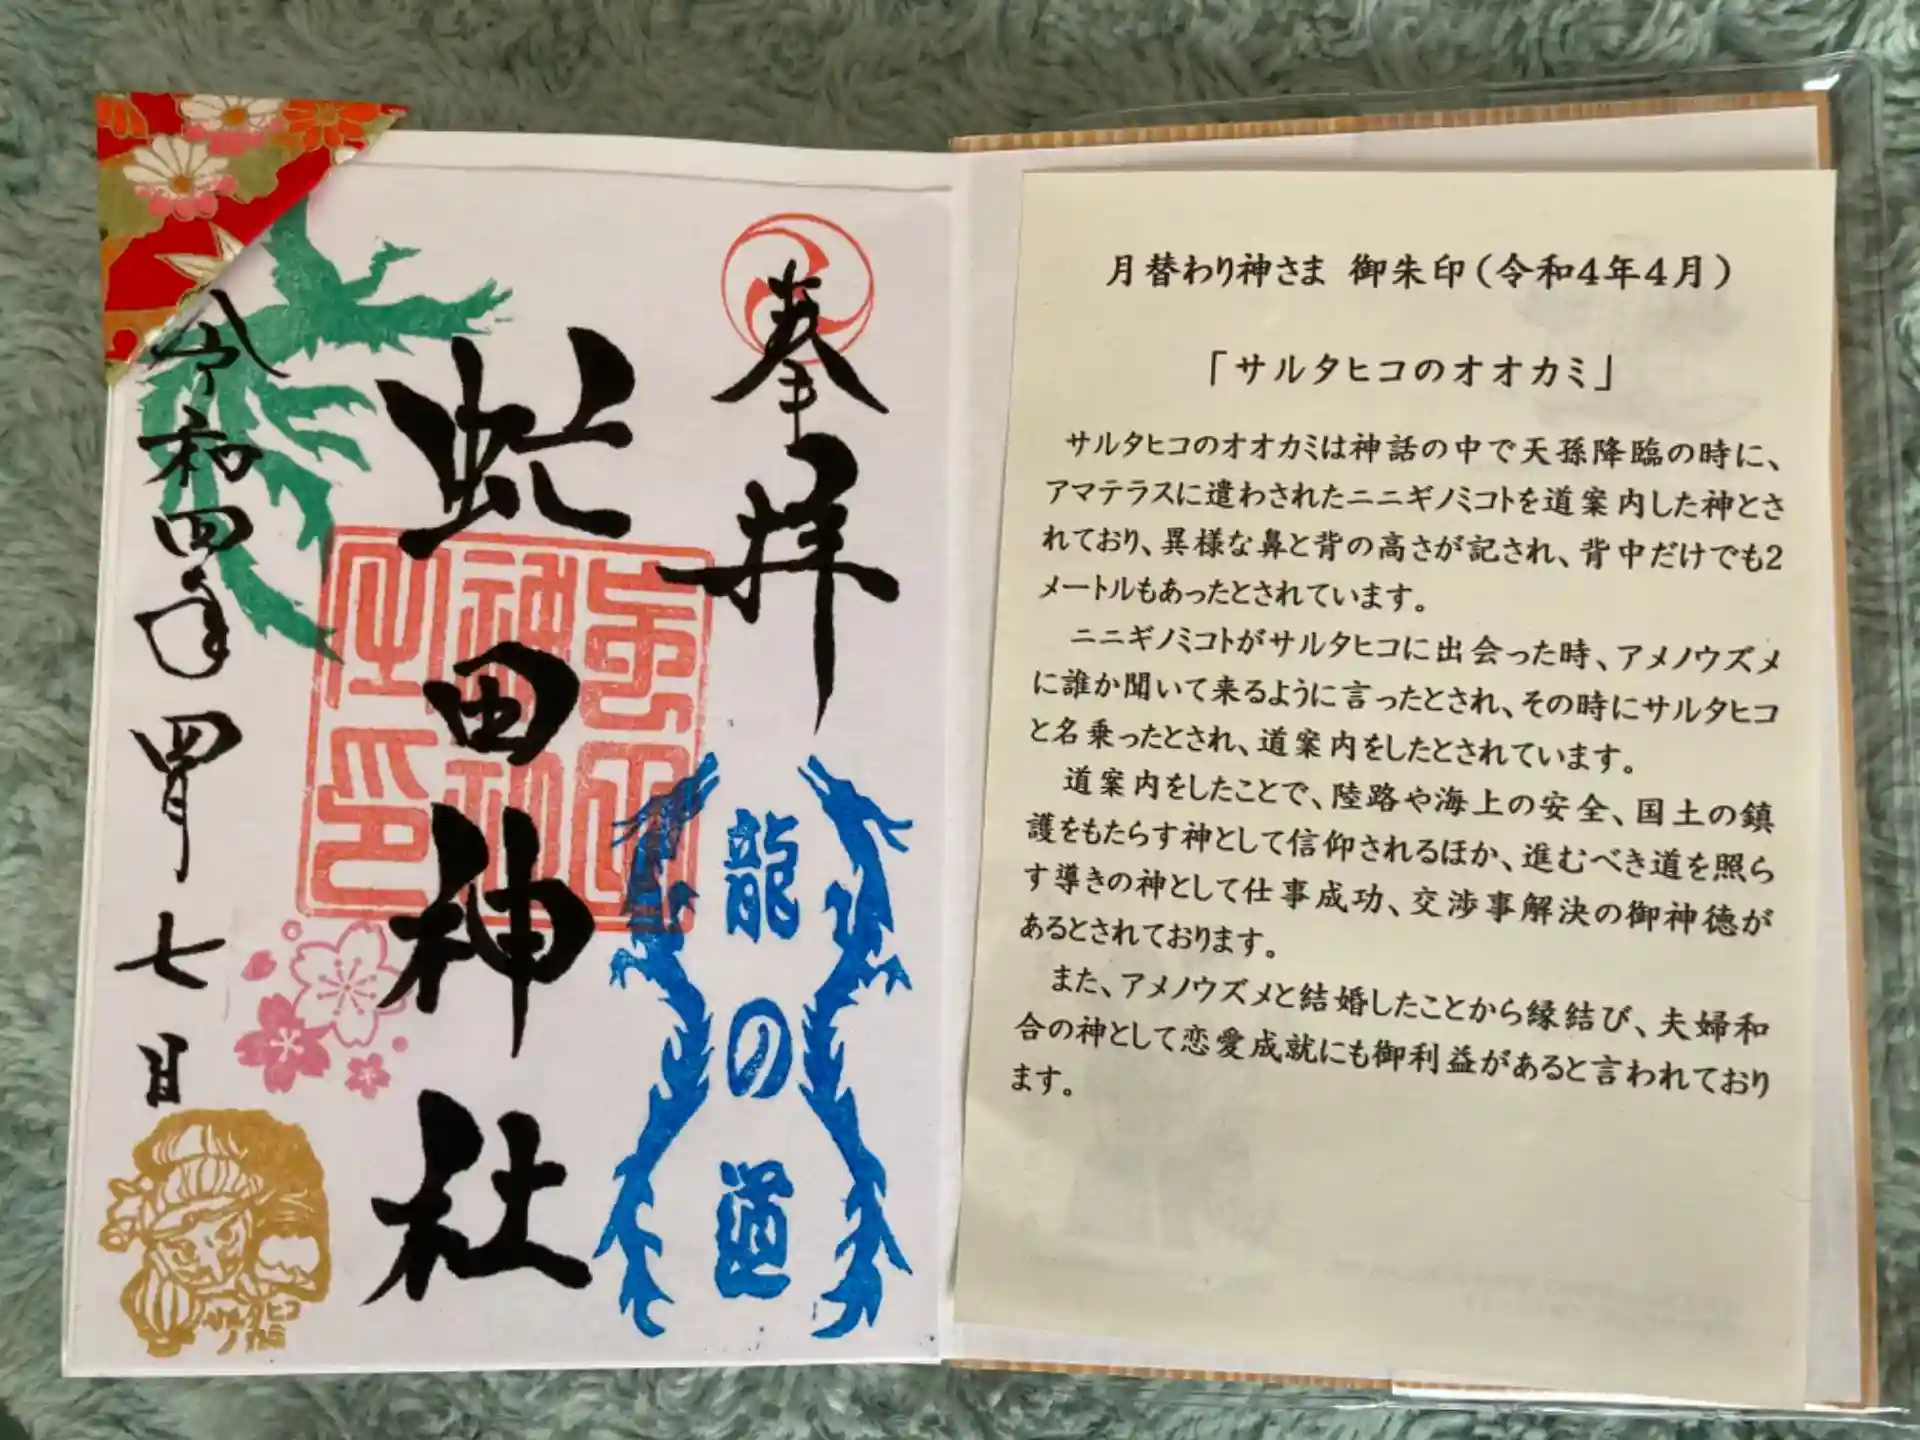 奉拝
龍の道
虻田神社
虻田神社印
令和四年四月七日
サルタヒコ
ノカミ
月替わり神さま 御朱印(令和4年4月)
「サルタヒコのオオカミ」
サルタヒコのオオカミは神話の中で天孫降臨の時に、
アマテラスに遣わされたニニギノミコトを道案内した神とさ
れており、異様な鼻と背の高さが記され、背中だけでも2
メートルもあったとされています。
ニニギノミコトがサルタヒコに出会った時、アメノウズメ
に誰か聞いて来るように言ったとされ、その時にサルタヒコ
と名乗ったとされ、道案内をしたとされています。
道案内をしたことで、陸路や海上の安全、国土の鎮
護をもたらす神として信仰されるほか、進むべき道を照ら
す導きの神として仕事成功、交渉事解決の御神徳が
あるとされております。
また、アメノウズメと結婚したことから縁結び、夫婦和
合の神として恋愛成就にも御利益があると言われており
ます。